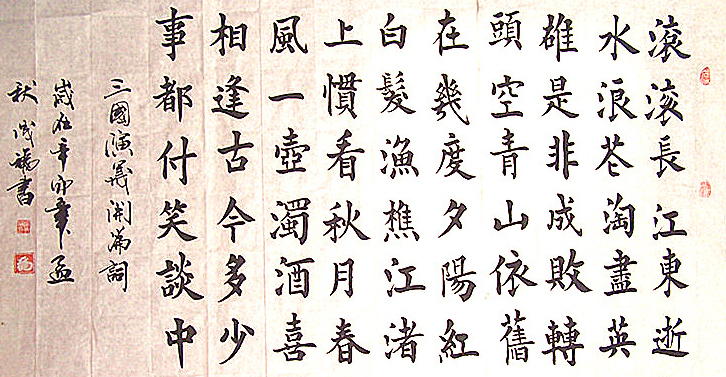 滾滾長江東逝
水浪花淘盡英
雄是非成敗轉
頭空青山依舊
在幾度夕陽紅
白髮漁樵江渚
上慣看秋月春
風一壺濁酒喜
相逢古今多少
事都付笑談中
三國演義開篇詞
歲在辛卯年孟
秋 書